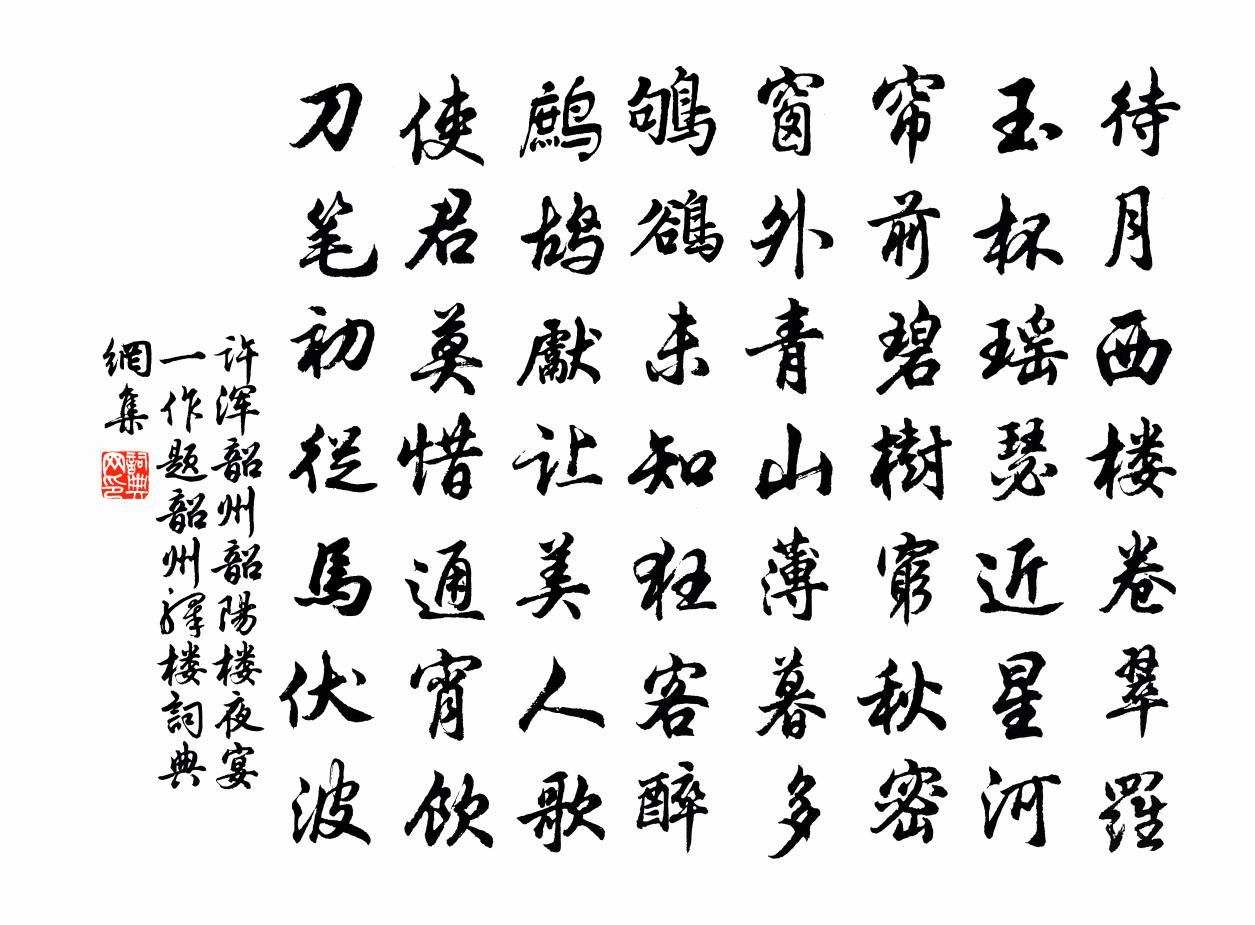 待月西楼卷翠羅
玉杯瑶瑟近星河
帘前碧樹窮秋密
窗外青山薄暮多
鴝鵒未知狂客醉
鷓鴣獻让美人歌
使君莫惜通宵飲
刀笔初從馬伏波
许浑韶州韶陽楼夜宴
一作题韶州驛楼詞典
網集
詞典网印